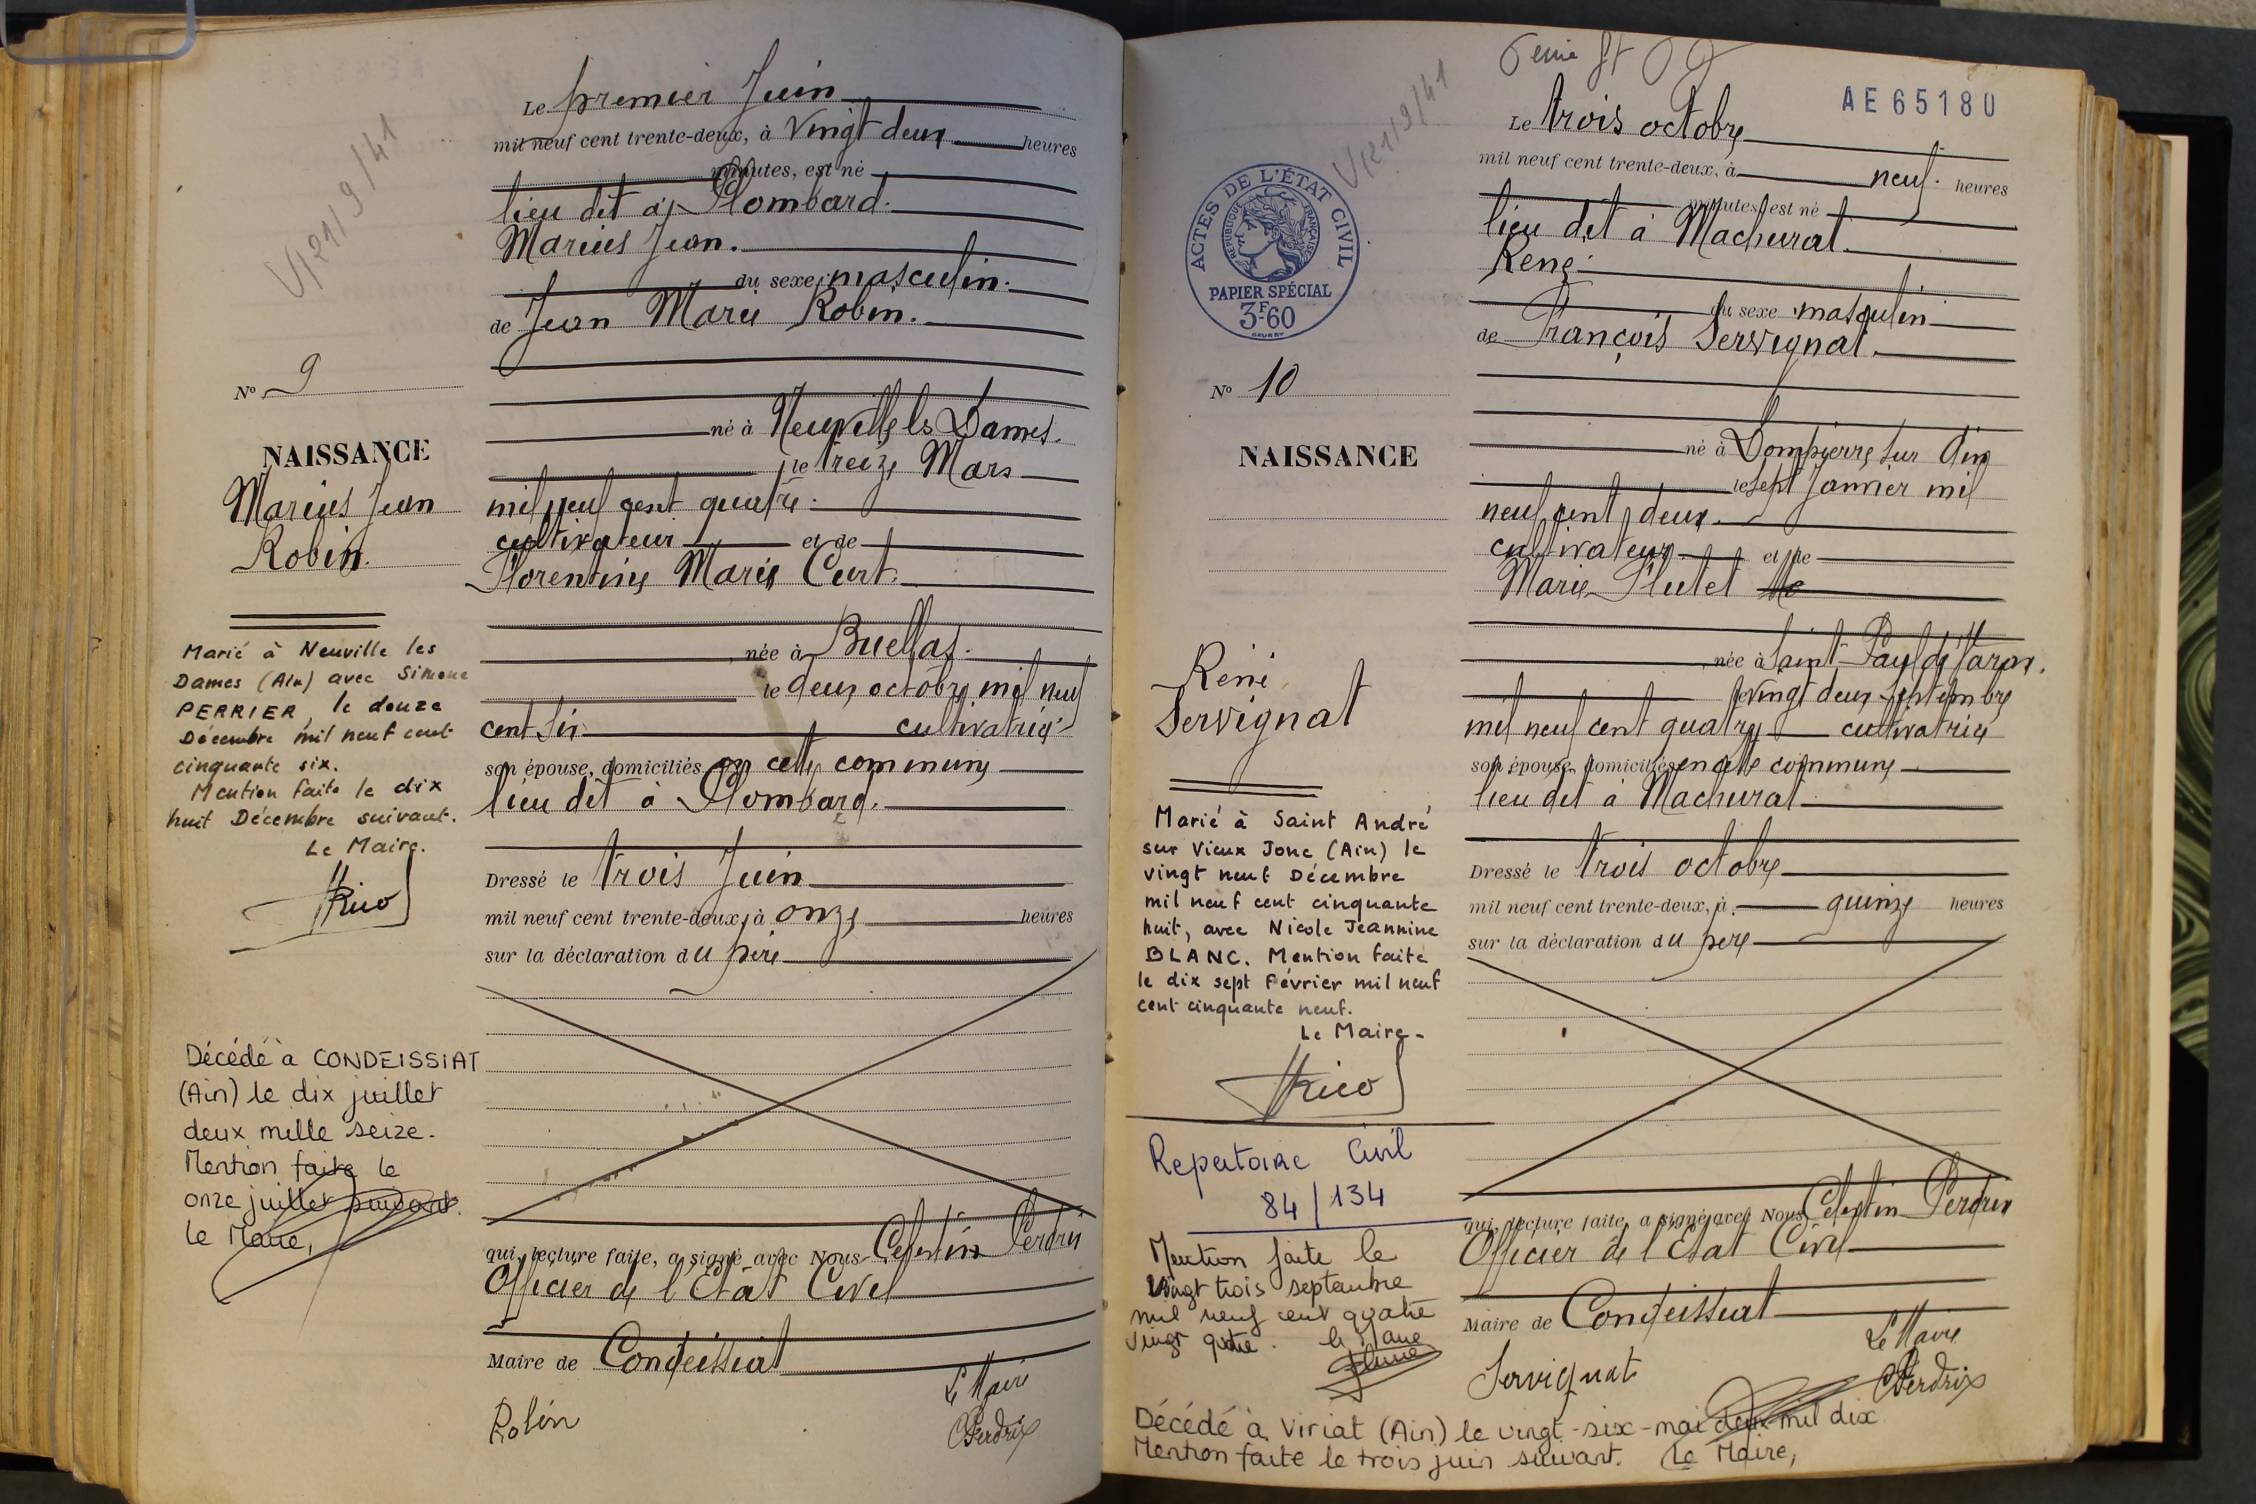 V 1219/41
Le premier Juin
mil neuf cent trente-deux, à vingt deux heures
minutes, est né
lieu dit à Plombard.
Marius Jean.
du sexe masculin.
de Jean Marie Robin.
né à Neuville les Dames.
le treize Mars
mil neuf cent quatre.
cultivateur et de
Florentine Marie Curt.
née à Buellas.
le deux octobre mil neuf
cent six cultivatrice
son épouse, domiciliés en cette commune
lieu dit à Plombard.
Dressé le trois Juin
mil neuf cent trente-deux, à onze heures
sur la déclaration du père
qui, lecture faite, a signé avec Nous Celestin Perdrix
Officier de l'Etat Civil
Maire de Condeissiat
Le Maire
Robin
CPerdrix
N° 9
NAISSANCE
Marius Jean
Robin.
Marié à Neuville les
Dames (Ain) avec Simone
PERRIER, le douze
Décembre mil neuf cent
cinquante six.
Mention faite le dix
huit Décembre suivant.
Le Maire.
Décédé à CONDEISSIAT
(Ain) le dix juillet
deux mille seize.
Mention faite le
onze juillet suivant.
Le Maire,
V 1219/41
AE65180
Le trois octobre
mil neuf cent trente-deux, à neuf. heures
minutes, est né
lieu dit à Machurat.
René.
du sexe masculin
de François Servignat.
né à Dompierre sur Ain
le sept Janvier mil
neuf cent deux.
cultivateur et de
Marie Plutet
née à Saint-Paul de Varax.
le vingt deux Septembre
mil neuf cent quatre cultivatrice
son épouse, domiciliés en cette commune
lieu dit à Machurat
Dressé le trois octobre
mil neuf cent trente-deux, à quinze heures
sur la déclaration du père
qui, lecture faite, a signé avec Nous Celestin Perdrix
Officier de l'Etat Civil
Maire de Condeissiat
Le Maire
Servignat
CPerdrix
ACTES DE L'ÉTAT CIVIL
RÉPUBLIQUE FRANÇAISE
PAPIER SPÉCIAL
3F-60
N° 10
NAISSANCE
René
Servignat
Marié à Saint André
sur Vieux Jonc (Ain) le
vingt neuf Décembre
mil neuf cent cinquante
huit, avec Nicole Jeannine
BLANC. Mention faite
le dix sept Février mil neuf
cent cinquante neuf.
Le Maire-
Repertoire Civil
84/134
Mention faite le
vingt trois septembre
mil neuf cent quatre
vingt quatre. le Maire
Décédé à Viriat (Ain) le vingt-six-mai deux mil dix
Mention faite le trois juin suivant. Le Maire,